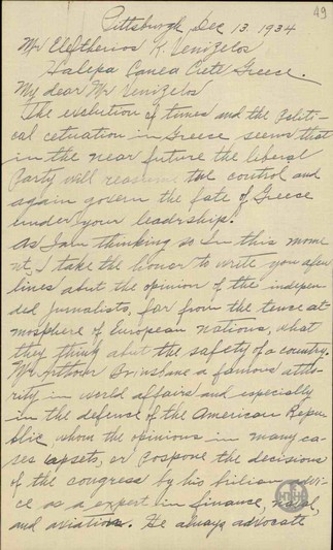 49
Pittsburgh Dec 13. 1934
Mr Eleftherios K. Venizelos
Halepa Canea Crete Greece.
My dear Mr Venizelos
The evolution of times and the Politi-
cal cetuation in Greece seems that
in the near future the liberal
Party will reassume the control and
again govern the fate of Greece
under your leadership.
As I am thinking so in this mome
nt, I take the honor to write you afew
lines abut the opinion of the indepen
ded Jurnalists, far from the tence at-
mosphere of European nations, what
they think abut the safety of a country.
Mr Arthour Brinsbane a famous attho-
rity in world affairs and especially
in the defence of the American Repu
blic whom the opinions in many ca-
ses upsets, or pospone the decisions
of the congress by his brilian advi-
ce as a expert in finance, naval,
and aviation. He always advocate